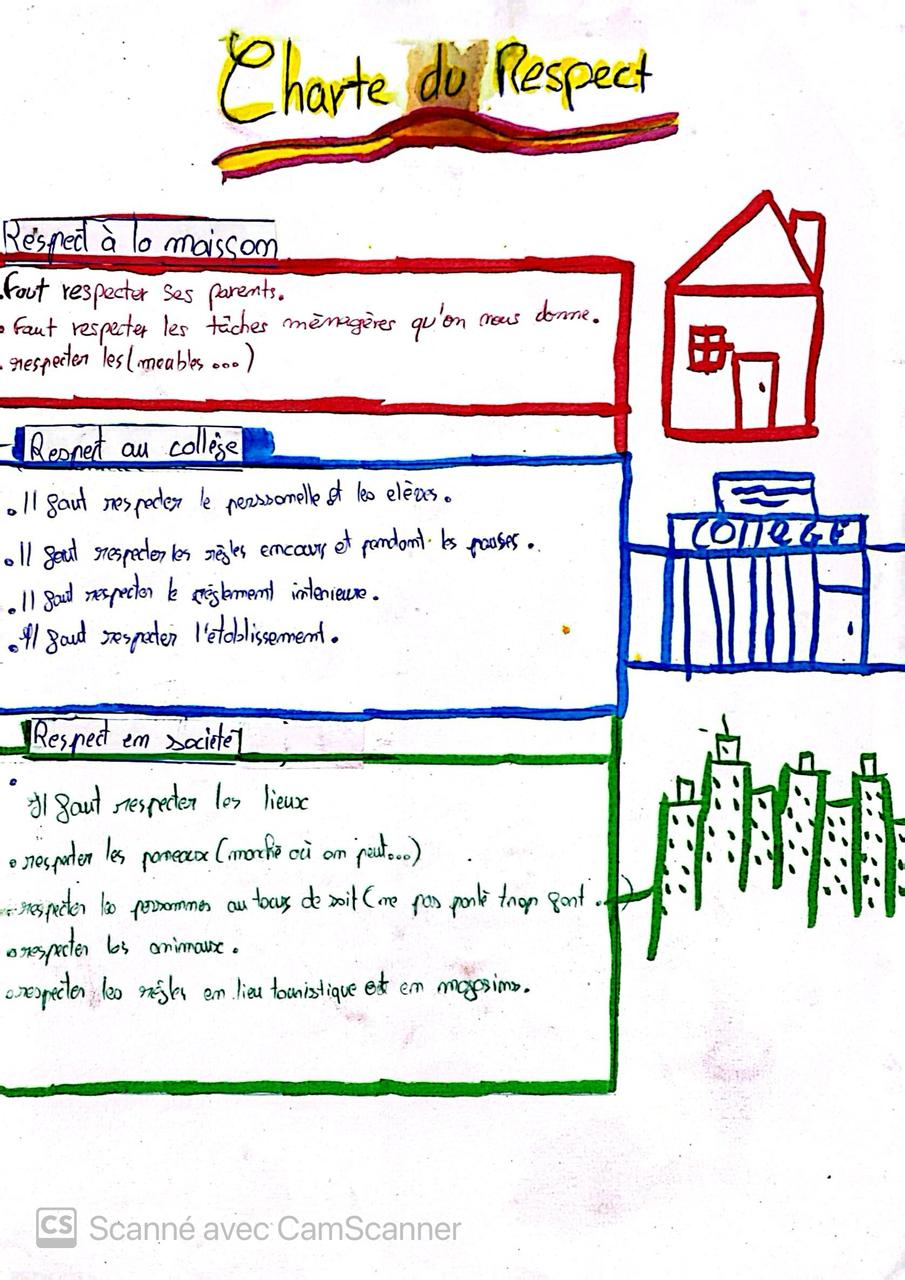 Charte du Respect
Respect à la maisson
.Faut respecter ses parents.
. Faut respecter les tâches ménagères qu'on nous donne.
. respecter les (meubles ...)
Respect au collège
. Il faut respecter le perssonelle et les elèves.
. Il faut respecter les règles encours et pendant les pauses.
. Il faut respecter le règlement interieure.
. Il faut respecter l'établissement.
COllEGE
Respect en societé
Il faut respecter les lieux
. respecter les paneaux (marché où on peut...)
. respecter les personnes autours de soit (ne pas parlé trop fort ...)
. respecter les animaux.
. respecter les règles en lieu touristique et en magasins.
CS Scanné avec CamScanner